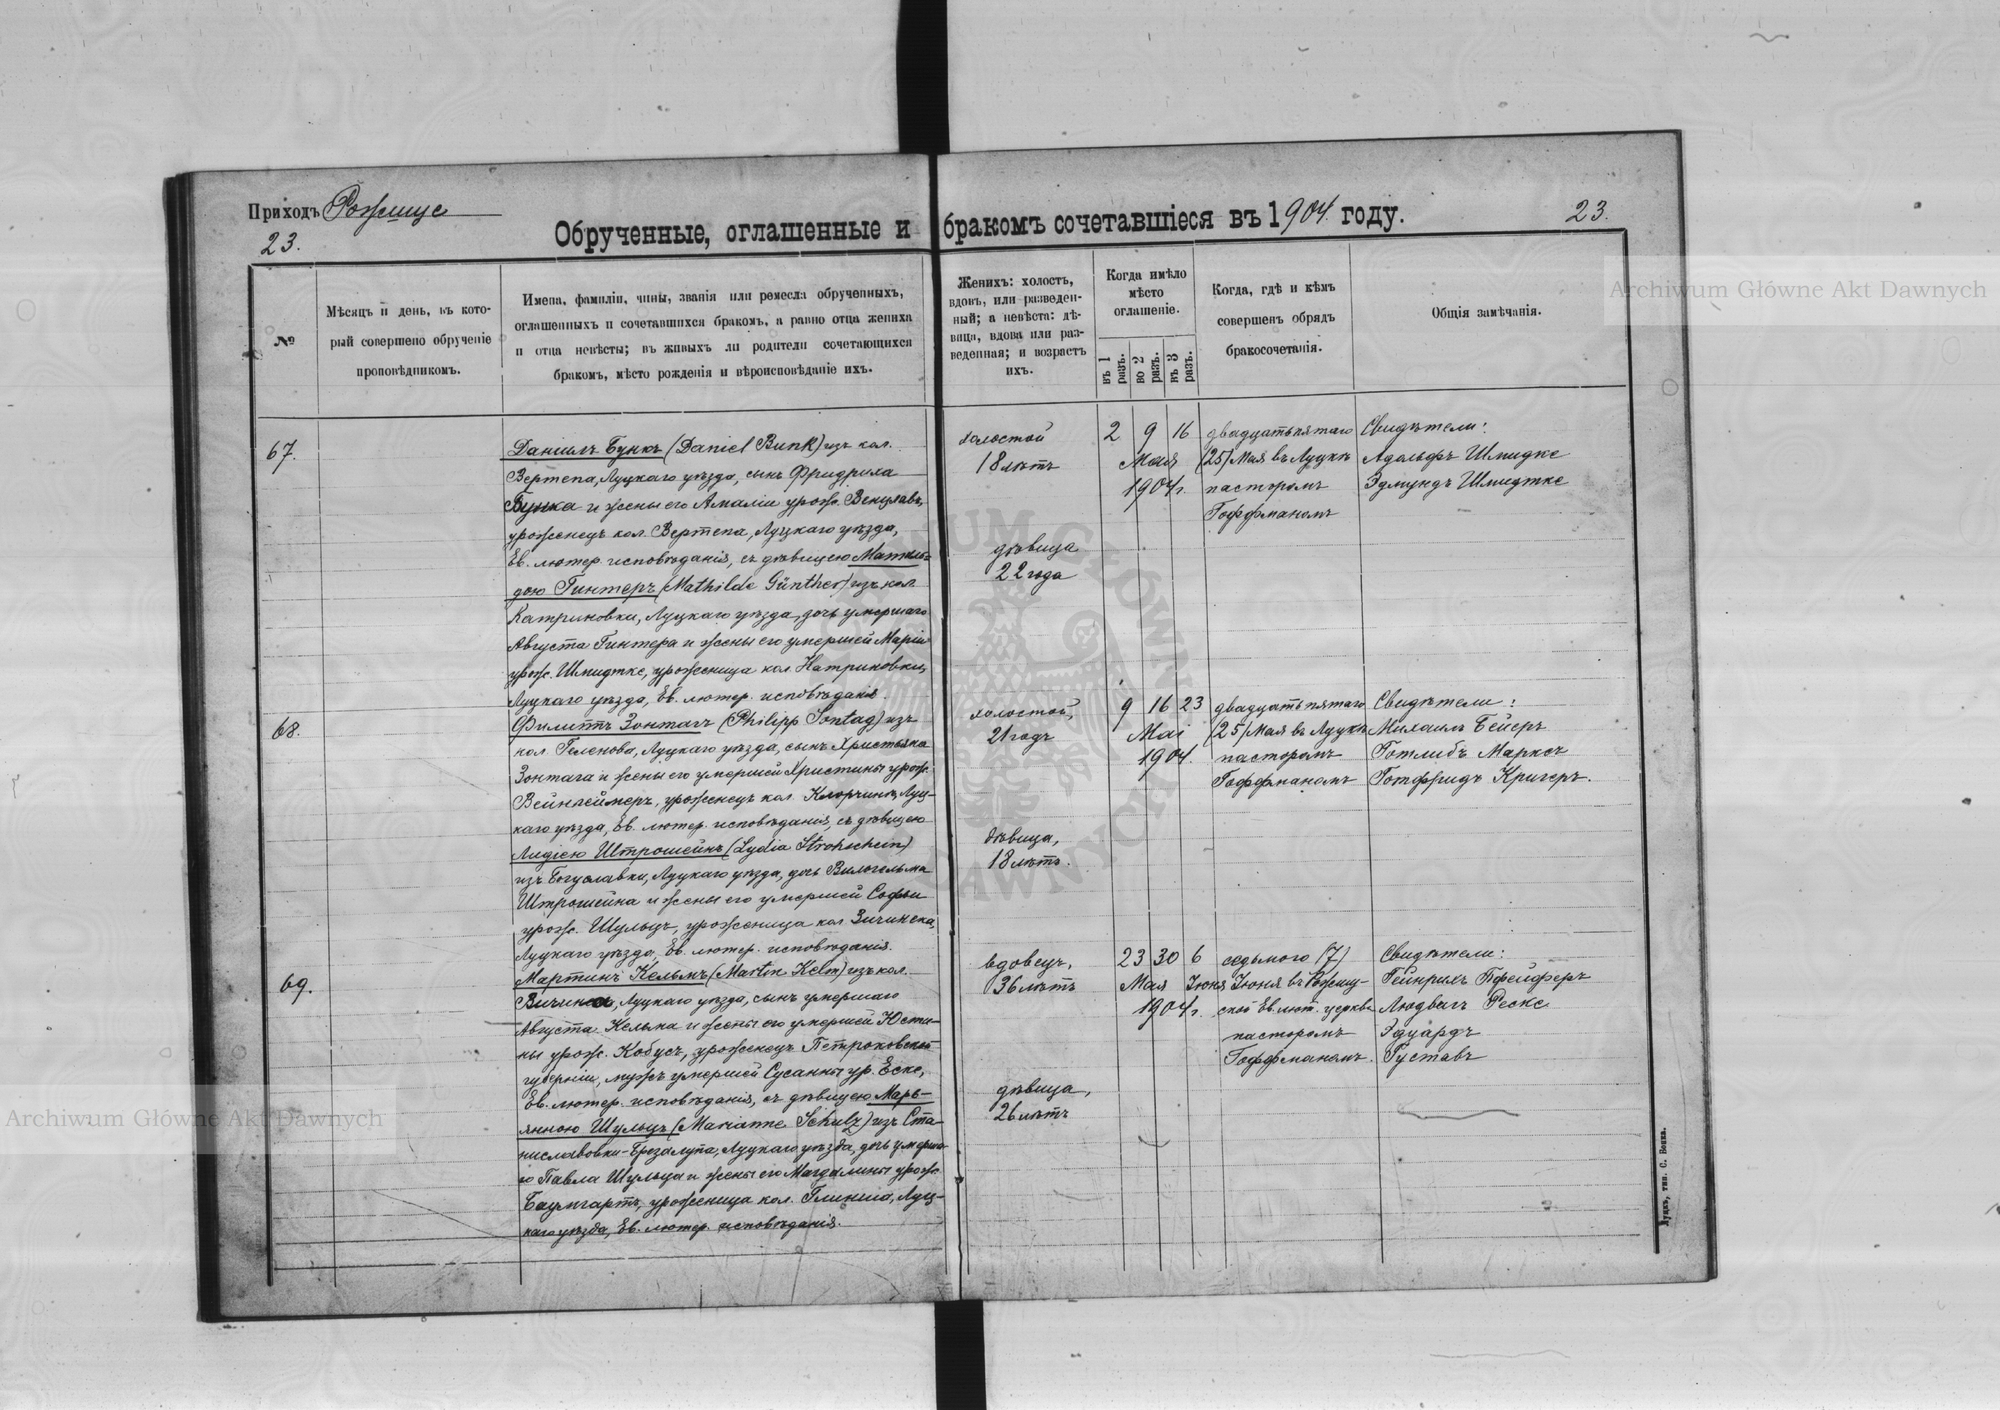 Приходъ Рожище
23.
Обрученные, оглашенные и бракомъ сочетавшіеся въ 1904. году.
23.
№
Мѣсяцъ и день, въ кото-
рый совершено обрученіе
проповѣдникомъ.
Имена, фамиліи, чины, званія или ремесла обрученныхъ,
оглашенныхъ и сочетавшихся бракомъ, а равно отца жениха
и отца невѣсты; въ живыхъ ли родители сочетающихся
бракомъ, мѣсто рожденія и вѣроисповѣданіе ихъ.
Женихъ: холостъ,
вдовъ, или разведен-
ный; а невѣста: дѣ-
вица, вдова или раз-
веденная; и возрастъ
ихъ.
Когда имѣло
мѣсто
оглашеніе.
въ 1
разъ.
во 2
разъ.
въ 3
разъ.
Когда, гдѣ и кѣмъ
совершенъ обрядъ
бракосочетанія.
Общія замѣчанія.
67.
Даніилъ Бункъ (Daniel Bunk) изъ кол.
Вертепа, Луцкаго уѣзда, сынъ Фридриха
Бунка и жены его Амаліи урож. Венцлавъ,
уроженецъ кол. Вертепа, Луцкаго уѣзда,
Ев. лютер. исповѣданія, съ дѣвицею Матиль-
дою Гинтеръ (Mathilde Günther) изъ кол.
Катриновки, Луцкаго уѣзда, дочь умершаго
Августа Гинтера и жены его умершей Маріи
урож. Шмидтке, уроженица кол. Катриновки,
Луцкаго уѣзда, Ев. лютер. исповѣданія.
холостой
18 лѣтъ
дѣвица
22 года
2 9 16
Мая
1904 г.
двадцать пятаго
(25) Мая въ Луцкѣ
пасторомъ
Гоффманомъ
Свидѣтели:
Адольфъ Шмидке
Эдмундъ Шмидтке
68.
Филиппъ Зонтагъ (Philipp Sontag) изъ
кол. Геленова, Луцкаго уѣзда, сынъ Христьяна
Зонтага и жены его умершей Христины урож.
Вейнгеймеръ, уроженецъ кол. Луц-
каго уѣзда, Ев. лютер. исповѣданія, съ дѣвицею
Лидіею Штрошейнъ (Lydia Strohschein)
изъ Богуславки, Луцкаго уѣзда, дочь Вильгельма
Штрошейна и жены его умершей Софьи
урож. Шульцъ, уроженица кол.
Луцкаго уѣзда, Ев. лютер. исповѣданія.
холостой,
21 годъ
дѣвица,
18 лѣтъ.
9 16 23
Маі
1904.
двадцать пятаго
(25) Мая въ Луцкѣ
пасторомъ
Гоффманомъ
Свидѣтели:
Михаилъ Бейеръ
Готлибъ Марксъ
Готфридъ Кригеръ.
69.
Мартинъ Кельмъ (Martin Kelm) изъ кол.
Луцкаго уѣзда, сынъ умершаго
Августа Кельма и жены его умершей Юсти-
ны урож. Кобусъ, уроженецъ Петроковской
губерніи, мужъ умершей Сусанны ур. Еске,
Ев. лютер. исповѣданія, съ дѣвицею Марь-
янною Шульцъ (Marianne Schulz) изъ Ста-
ниславовки-Брезалупа, Луцкаго уѣзда, дочь умерша-
го Павла Шульца и жены его Магдалины урож.
Баумгартъ, уроженица кол. Глинища, Луц-
каго уѣзда, Ев. лютер. исповѣданія.
вдовецъ,
36 лѣтъ
дѣвица,
26 лѣтъ
23 30 6
Мая Іюня
1904 г.
седьмого (7)
Іюня въ Рожищ-
ской Ев. лют. церкви
пасторомъ
Гоффманомъ.
Свидѣтели:
Гейнрихъ Пфейферъ
Людвигъ Реске
Эдуардъ
Густавъ
Луцкъ, тип. С. Бокка.
Archiwum Główne Akt Dawnych
Archiwum Główne Akt Dawnych